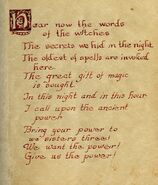 Hear now the words
of the witches
The secrets we hid in the night.
The oldest of spells are invoked
here.
The great gift of magic
is sought
In this night and in this hour
I call upon the ancient
power
Bring your power to
we sisters three!
We want the power!
Give us the power!